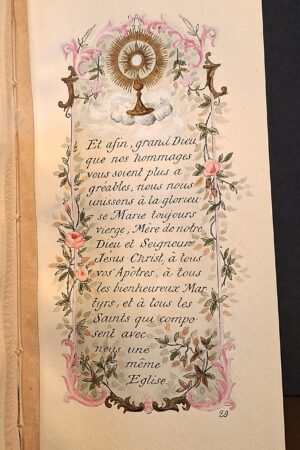 Et afin, grand Dieu
que nos hommages
vous soient plus a
gréables, nous nous
unissons à la glorieu
se Marie toujours
vierge, Mère de notre
Dieu et Seigneur
Jesus Christ, à tous
vos Apôtres, à tous
les bienheureux Mar
tyrs, et à tous les
Saints qui compo
sent avec
nous une
même
Eglise.
23